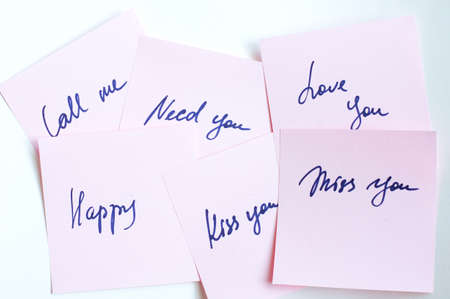 Call me
Need you
Love
you
Happy
Kiss you
Miss you